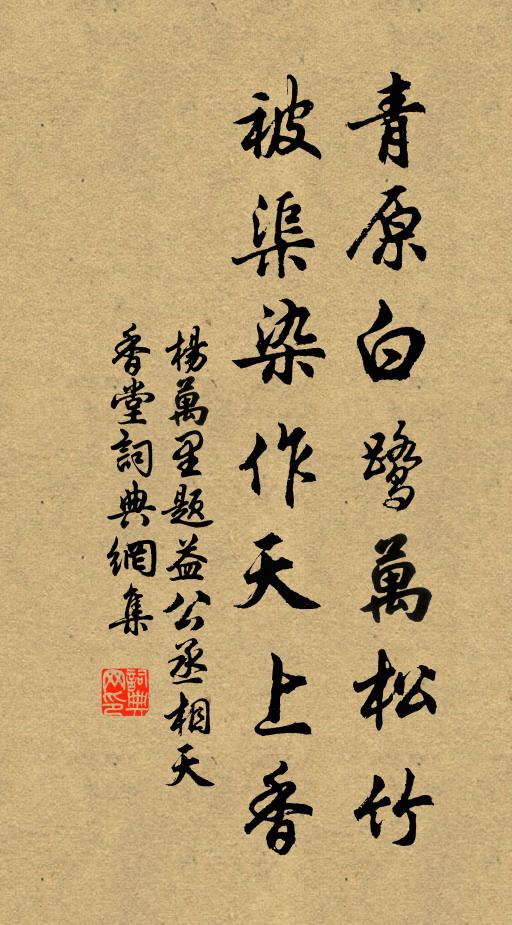 青原白鷺萬松竹
被渠染作天上香
楊萬里题益公丞相天
香堂詞典網集
詞典
网印